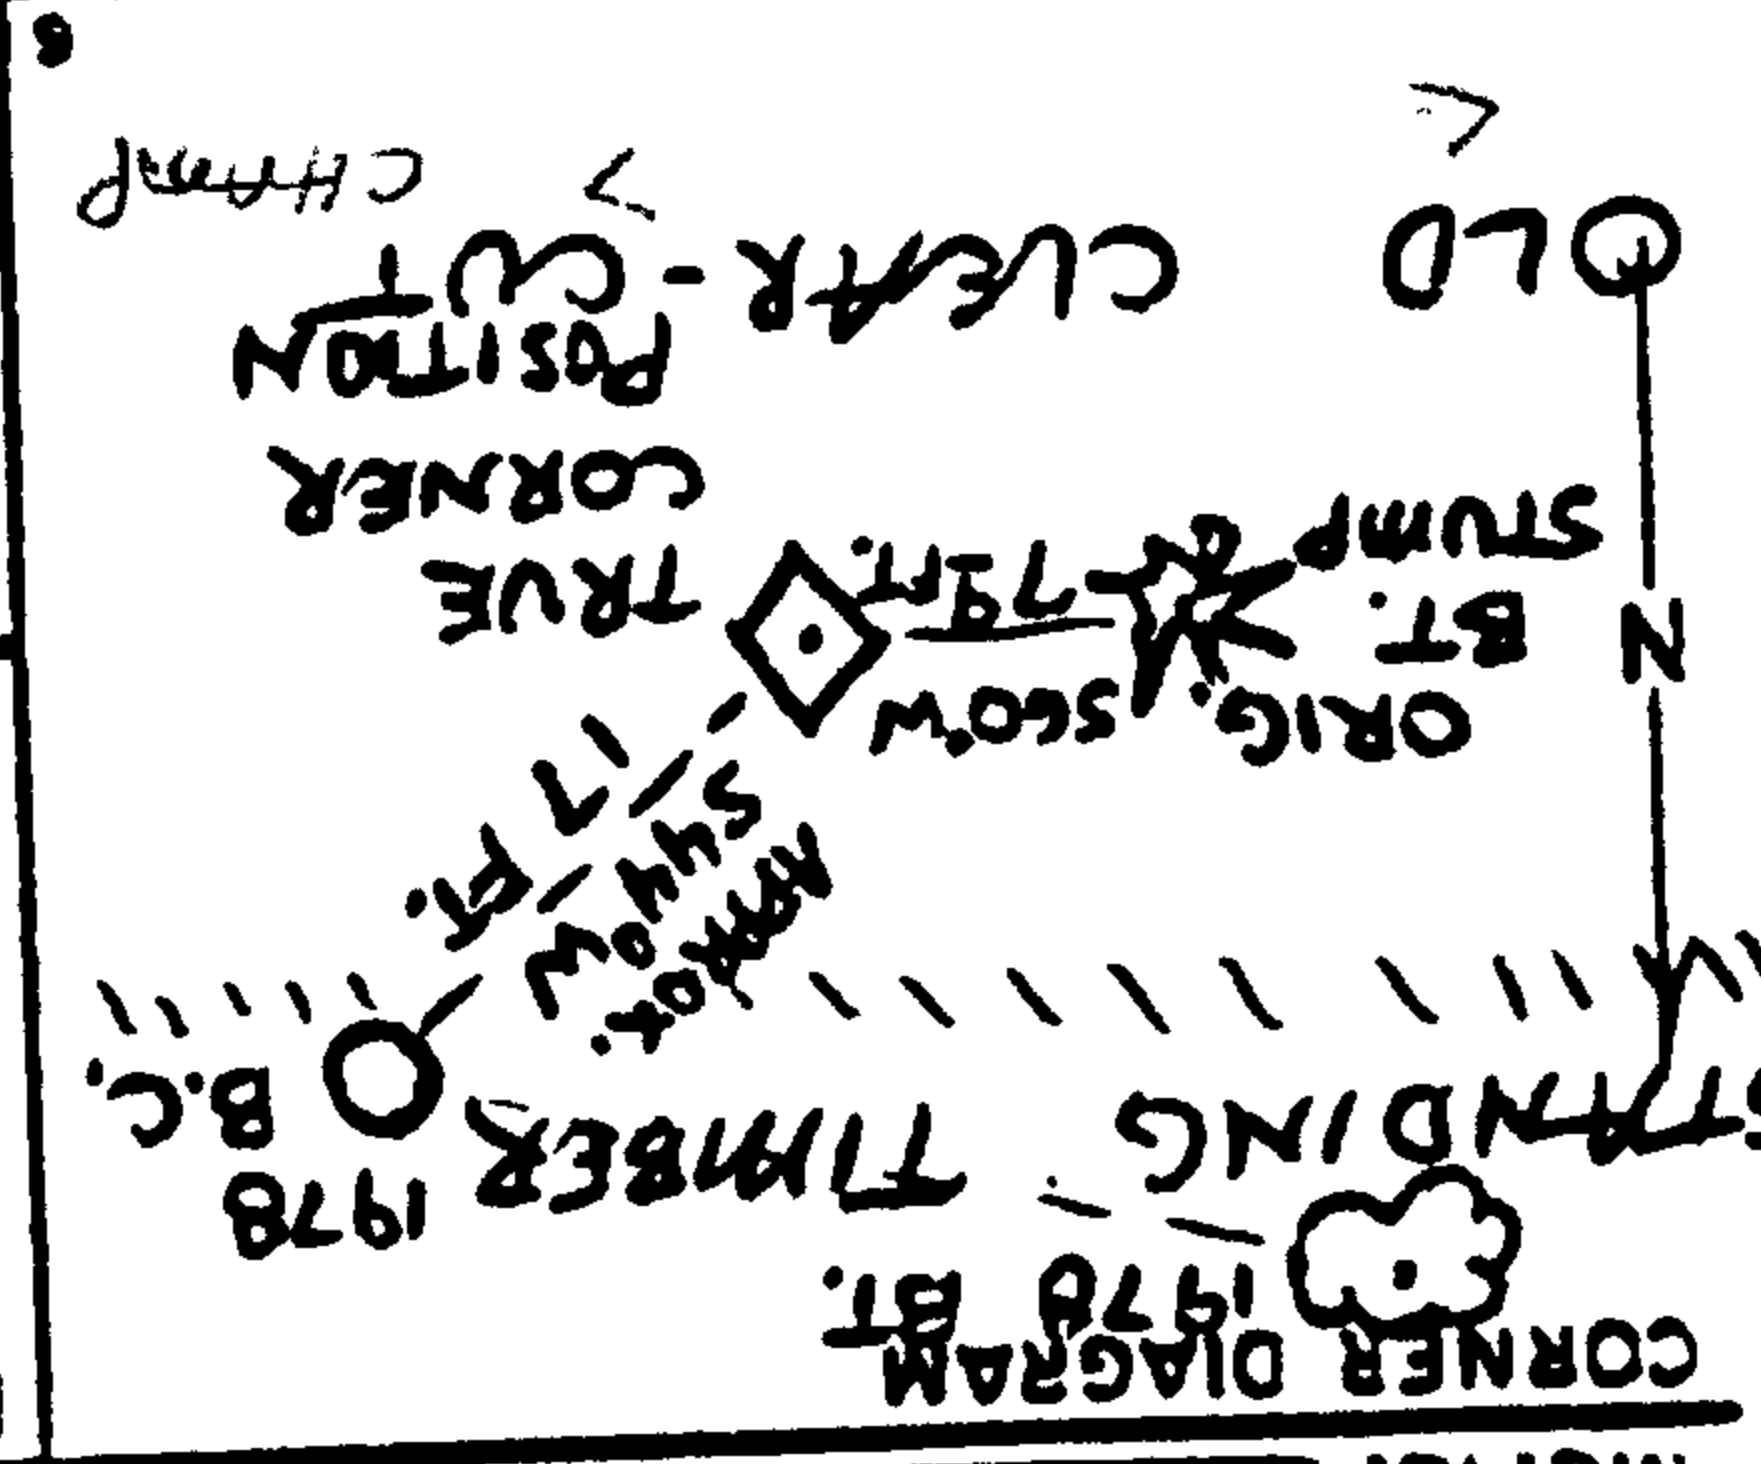 CORNER DIAGRAM
1978 BT.
STANDING TIMBER
1978
B.C.
APPROX.
S44°W
17 FT.
ORIG.
BT.
STUMP
S60°W
79 FT.
N
TRUE
CORNER
POSITION
OLD CLEAR-CUT